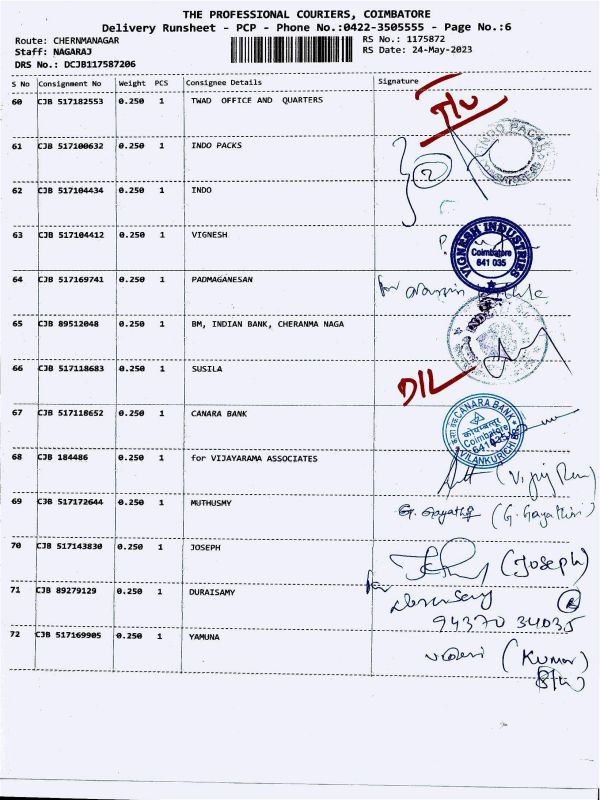 THE PROFESSIONAL COURIERS, COIMBATORE
Delivery Runsheet - PCP - Phone No.:0422-3505555 - Page No.:6
Route: CHERNMANAGAR
RS No.: 1175872
Staff: NAGARAJ
RS Date: 24-May-2023
DRS No.: DCJB117587206
S No Consignment No Weight PCS Consignee Details Signature
60 CJB 517182553 0.250 1 TWAD OFFICE AND QUARTERS
61 CJB 517100632 0.250 1 INDO PACKS
INDO PACKS
2
62 CJB 517104434 0.250 1 INDO
63 CJB 517104412 0.250 1 VIGNESH
VIGNESH INDUSTRIES
Coimbatore
641 035
64 CJB 517169741 0.250 1 PADMAGANESAN
for
65 CJB 89512048 0.250 1 BM, INDIAN BANK, CHERANMA NAGA
66 CJB 517118683 0.250 1 SUSILA
D/L
67 CJB 517118652 0.250 1 CANARA BANK
CANARA BANK
केनरा बैंक
कोयम्बतूर
Coimbatore
641 035
VILANKURICHI BR
68 CJB 184486 0.250 1 for VIJAYARAMA ASSOCIATES
69 CJB 517172644 0.250 1 MUTHUSMY
G. Gayathri (G. Gayathiri)
70 CJB 517143830 0.250 1 JOSEPH
(Joseph)
71 CJB 89279129 0.250 1 DURAISAMY
for
94370 34035
72 CJB 517169905 0.250 1 YAMUNA
(Kumar)